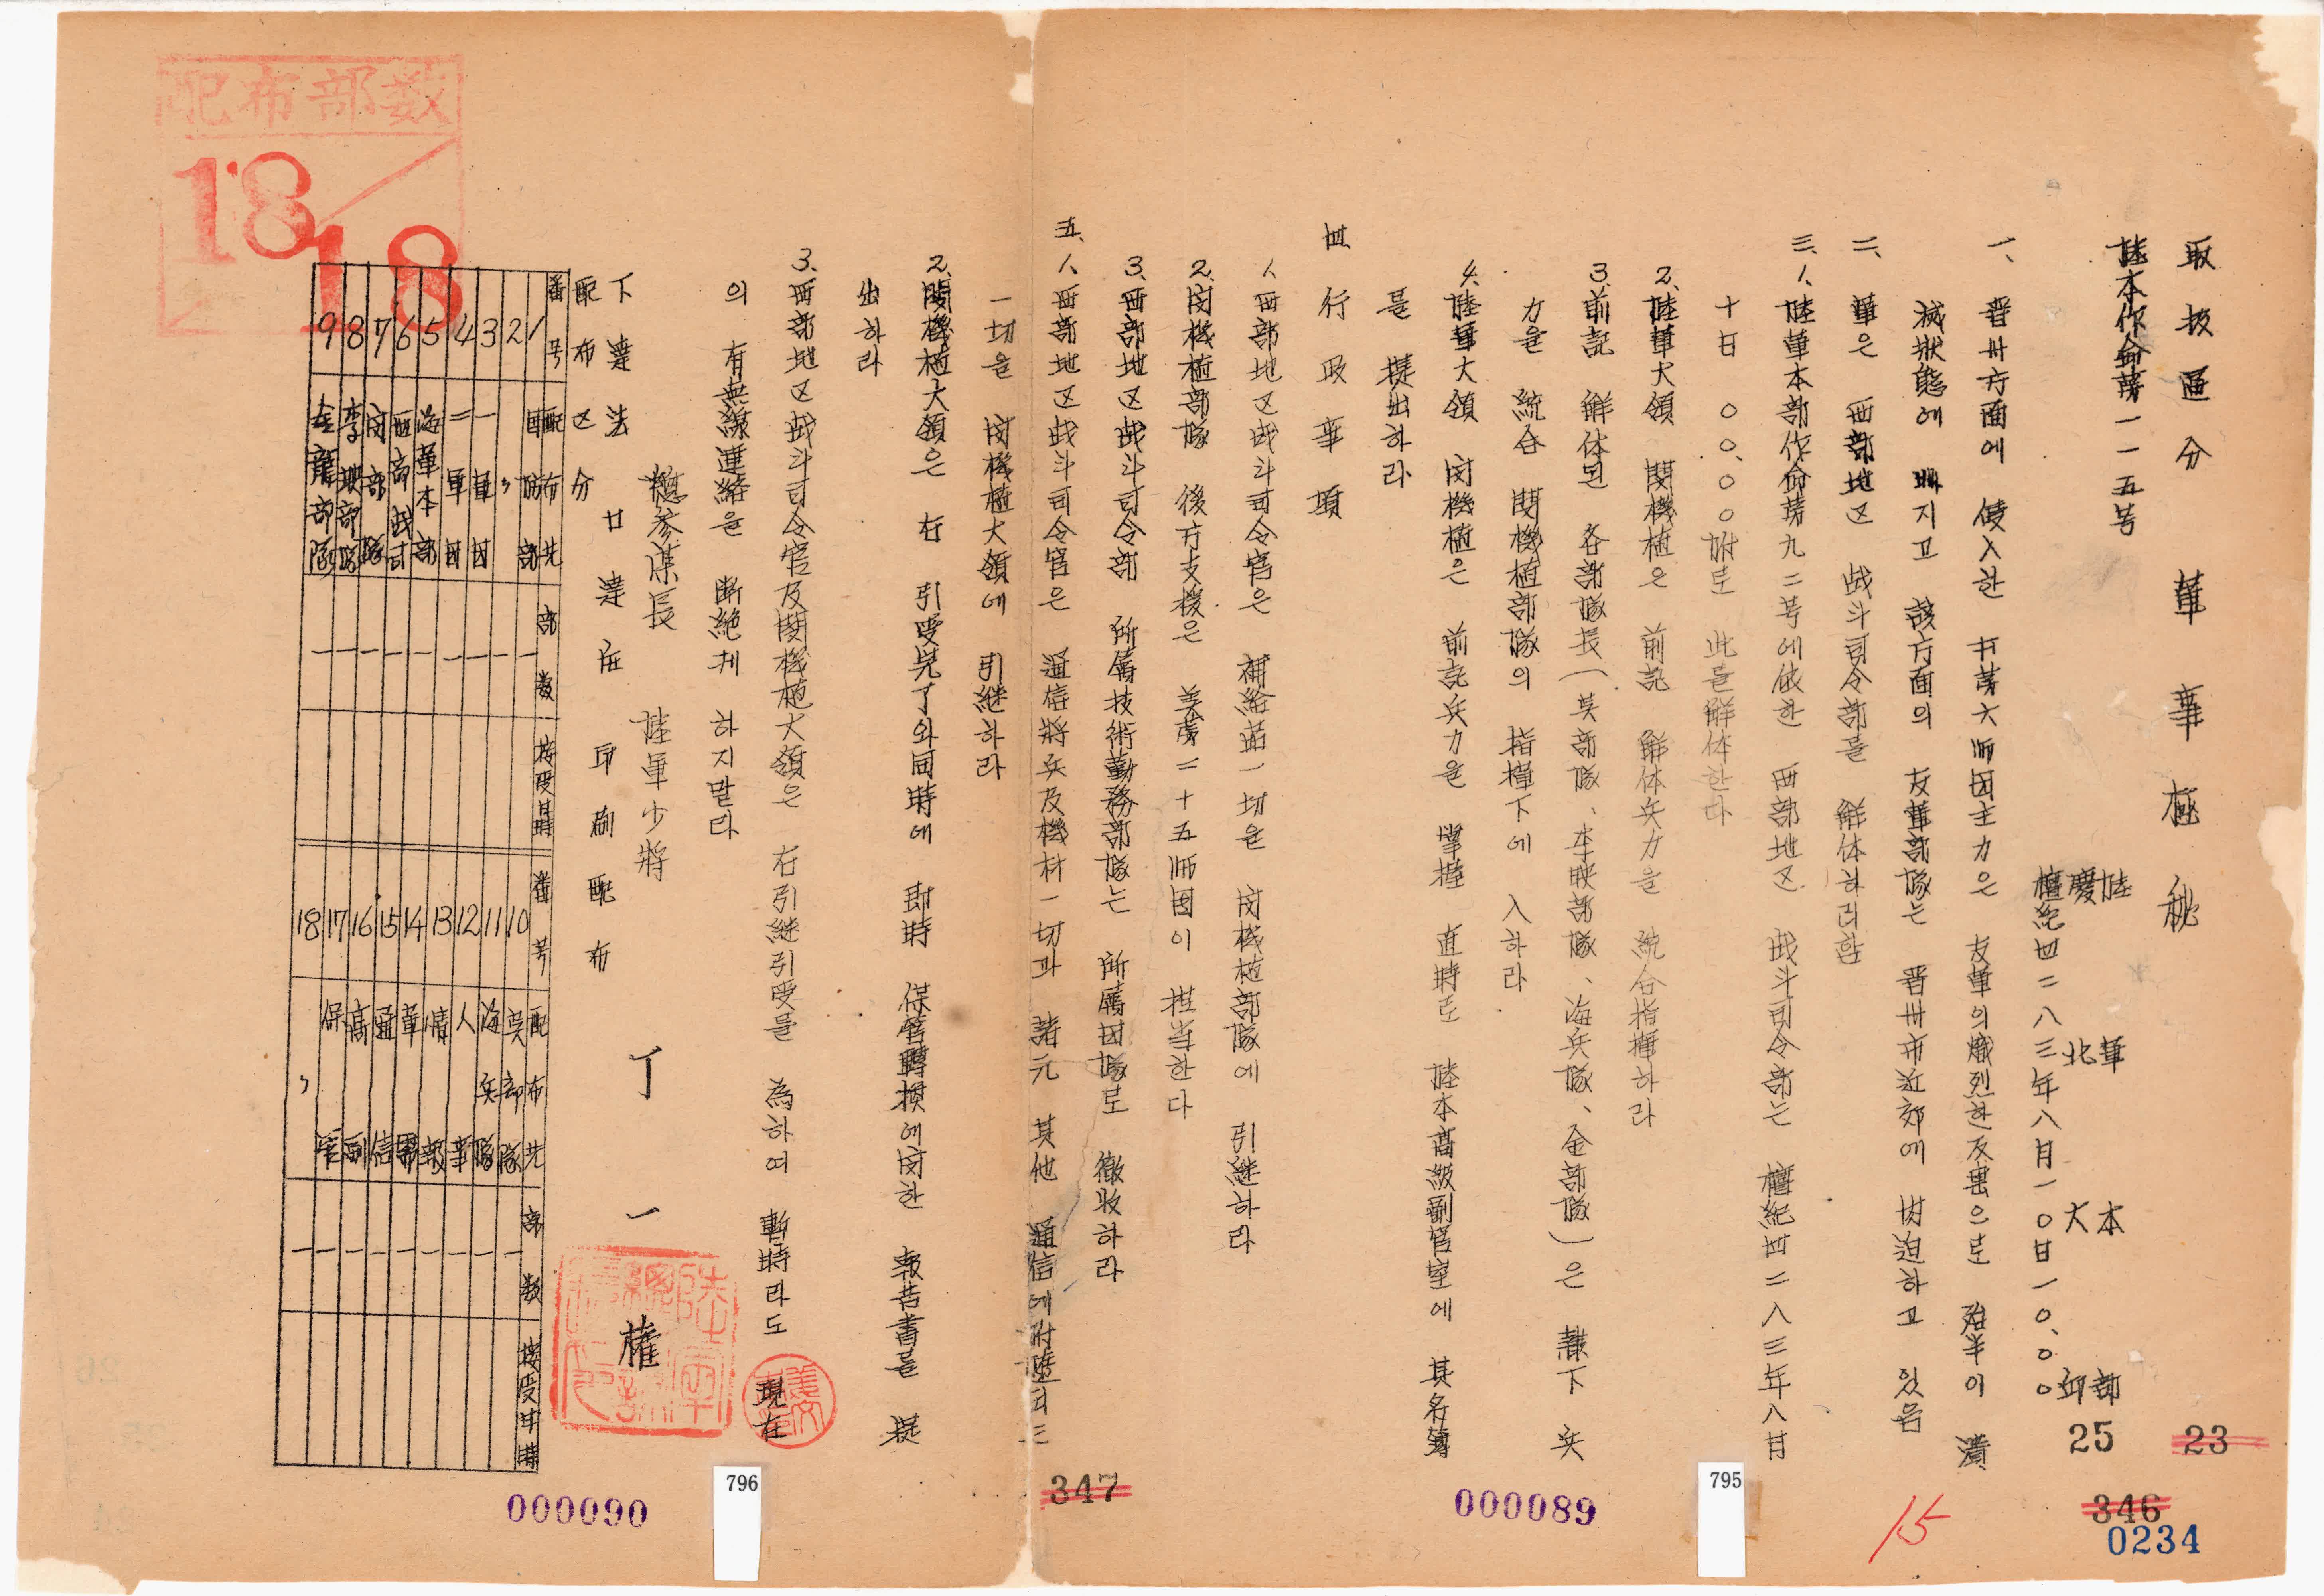 取扱區分 軍事極秘
陸本作命第一一五号
陸軍本部
慶北大邱
檀紀四二八三年八月一〇日一〇、〇〇
一、晋州方面에 侵入한 廾第六师団主力은 友軍의 熾烈한 反擊으로 殆半이 潰
滅狀態에 빠지고 該方面의 友軍部隊는 晋州市近郊에 肉迫하고 있음
二、軍은 西部地区 战斗司令部를 解体하려함
三、1、陸軍本部作命第九二号에 依한 西部地区 战斗司令部는 檀紀四二八三年八月
十日 〇〇、〇〇附로 此를 解体한다
2、陸軍大領 閔機植은 前記 解体兵力을 統合指揮하라
3、前記 解体된 各部隊長(吴部隊、李暎部隊、海兵隊、金部隊)은 隷下 兵
力을 統合 閔機植部隊의 指揮下에 入하라
4、陸軍大領 閔機植은 前記兵力을 掌握 直時로 陸本高級副官室에 其名簿
를 提出하라
四 行政事項
1、西部地区战斗司令官은 補給品一切을 閔機植部隊에 引継하라
2、閔機植部隊 後方支援은 美第二十五师団이 担当한다
3、西部地区战斗司令部 所屬技術勤務部隊는 所屬団隊로 撤收하라
五、1、西部地区战斗司令官은 通信將兵及機材一切과 諸元 其他 通信에 附隨되는
一切을 閔機植大領에 引継하라
2、閔機植大領은 右 引受完了와 同時에 即時 保管轉換에 関한 報告書를 提
出하라
3、西部地区战斗司令官及閔機植大領은 右引継引受를 為하여 暫時라도 現在
의 有無線連絡을 断絶케 하지말라
總参謀長 陸軍少將 丁 一 權
下達法 廿達后 印刷配布
配布区分
番号 配布先 部数 接受日時 番号 配布先 部数 接受日時
1 国防部 一 10 吴部隊 一
2 〃 一 11 海兵隊 一
3 一軍団 一 12 人事 一
4 二軍団 一 13 情報 一
5 海軍本部 一 14 軍需 一
6 西部战司 一 15 通信 一
7 閔部隊 一 16 高副 一
8 李暎部隊 一 17 保管 一
9 金龍部隊 一 18 〃 一
配布部数
18/18
23
25
346
0234
15
795
000089
347
796
000090